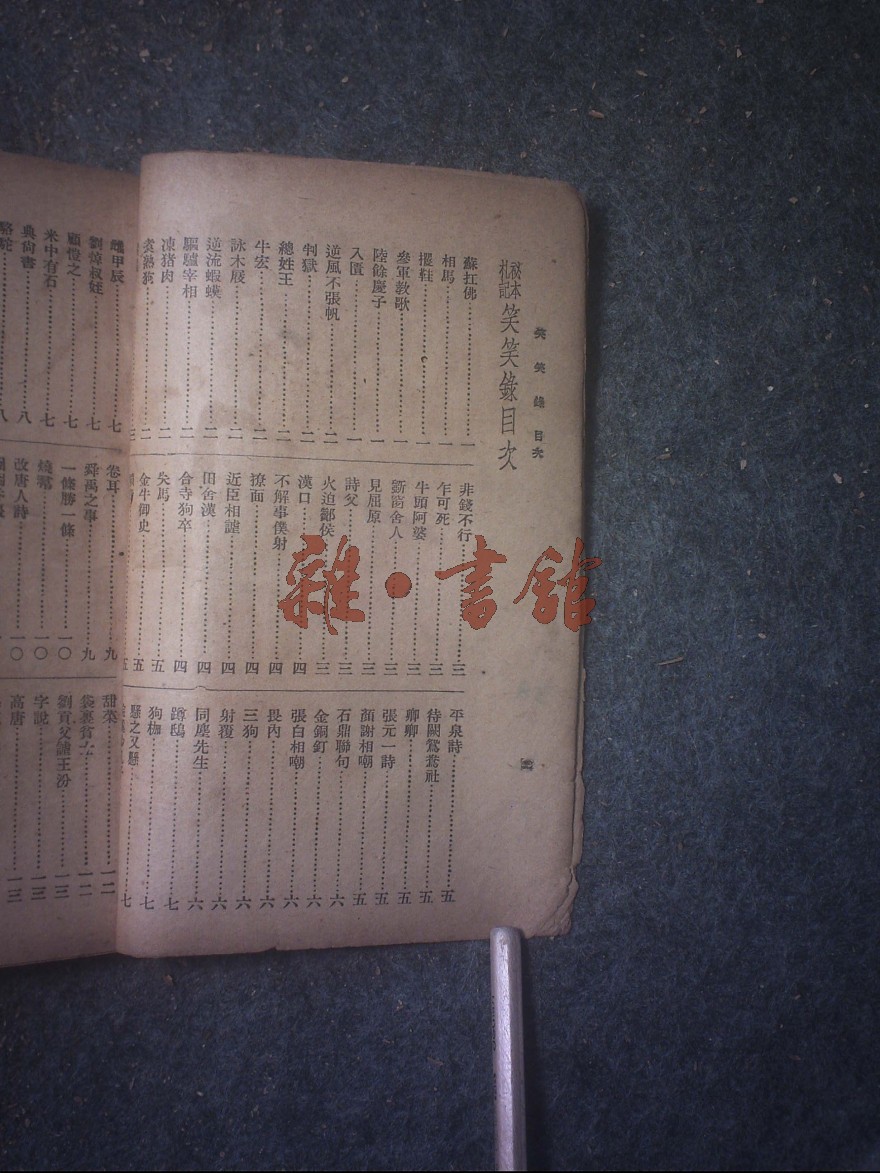 笑笑錄目次
祕本札記笑笑錄目次
蘇扛佛………一
相馬………一
攫鞋………一
參軍教歌………一
陸餘慶子………一
入匱………一
逆風不張帆………二
判獄………二
總姓王………二
牛宏………二
詠木屐………二
逆流蝦蟆………二
驅驢宰相………二
凍猪肉………二
煮熟狗………二
三
非錢不行………三
乍可死………三
牛頭阿婆………三
斵窗舍人………三
見屈原………三
詩父………三
火迫酇侯………三
漢口………四
不解事僕射………四
撩面………四
近臣相謔………四
田舍漢………四
合寺狗卒………四
失馬………五
金牛御史………五
五
平泉詩………五
待闕鴛鴦社………五
卿卿………五
張元一詩………五
顏謝相嘲………五
石鼎聯句………六
金銅釘………六
張白相嘲………六
畏內………六
三狗………六
射覆………六
同塵先生………六
蹲鴟………七
狗枷………七
騷之又騷………七
雌甲辰………七
劉焯叔姪………七
顧愷之………七
米中有石………七
典尙書………八
駱駝………八
卷耳………九
舜禹之事………九
一條勝一條………一〇
燒幕………一〇
改唐人詩………一〇
甜菜………一二
袋裏貧士………一二
劉貢父謔王汾………一三
字說………一三
高唐………一三
雜·書舘